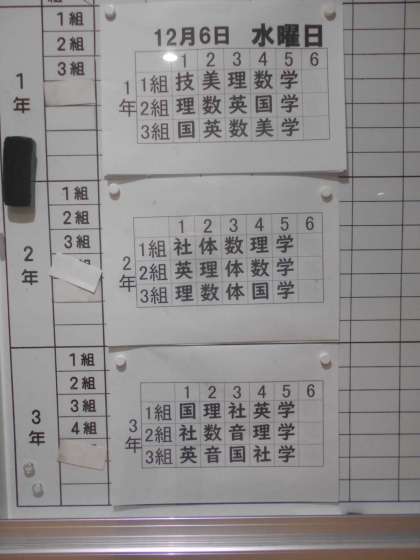 組
1年
1組
2組
3組
12月6日 水曜日
1 2 3 4 5 6
1年
1組 技 美 理 数 学
2組 理 数 英 国 学
3組 国 英 数 美 学
2年
1組
2組
3組
1 2 3 4 5 6
2年
1組 社 体 数 理 学
2組 英 理 体 数 学
3組 理 数 体 国 学
3年
1組
2組
3組
4組
1 2 3 4 5 6
3年
1組 国 理 社 英 学
2組 社 数 音 理 学
3組 英 音 国 社 学